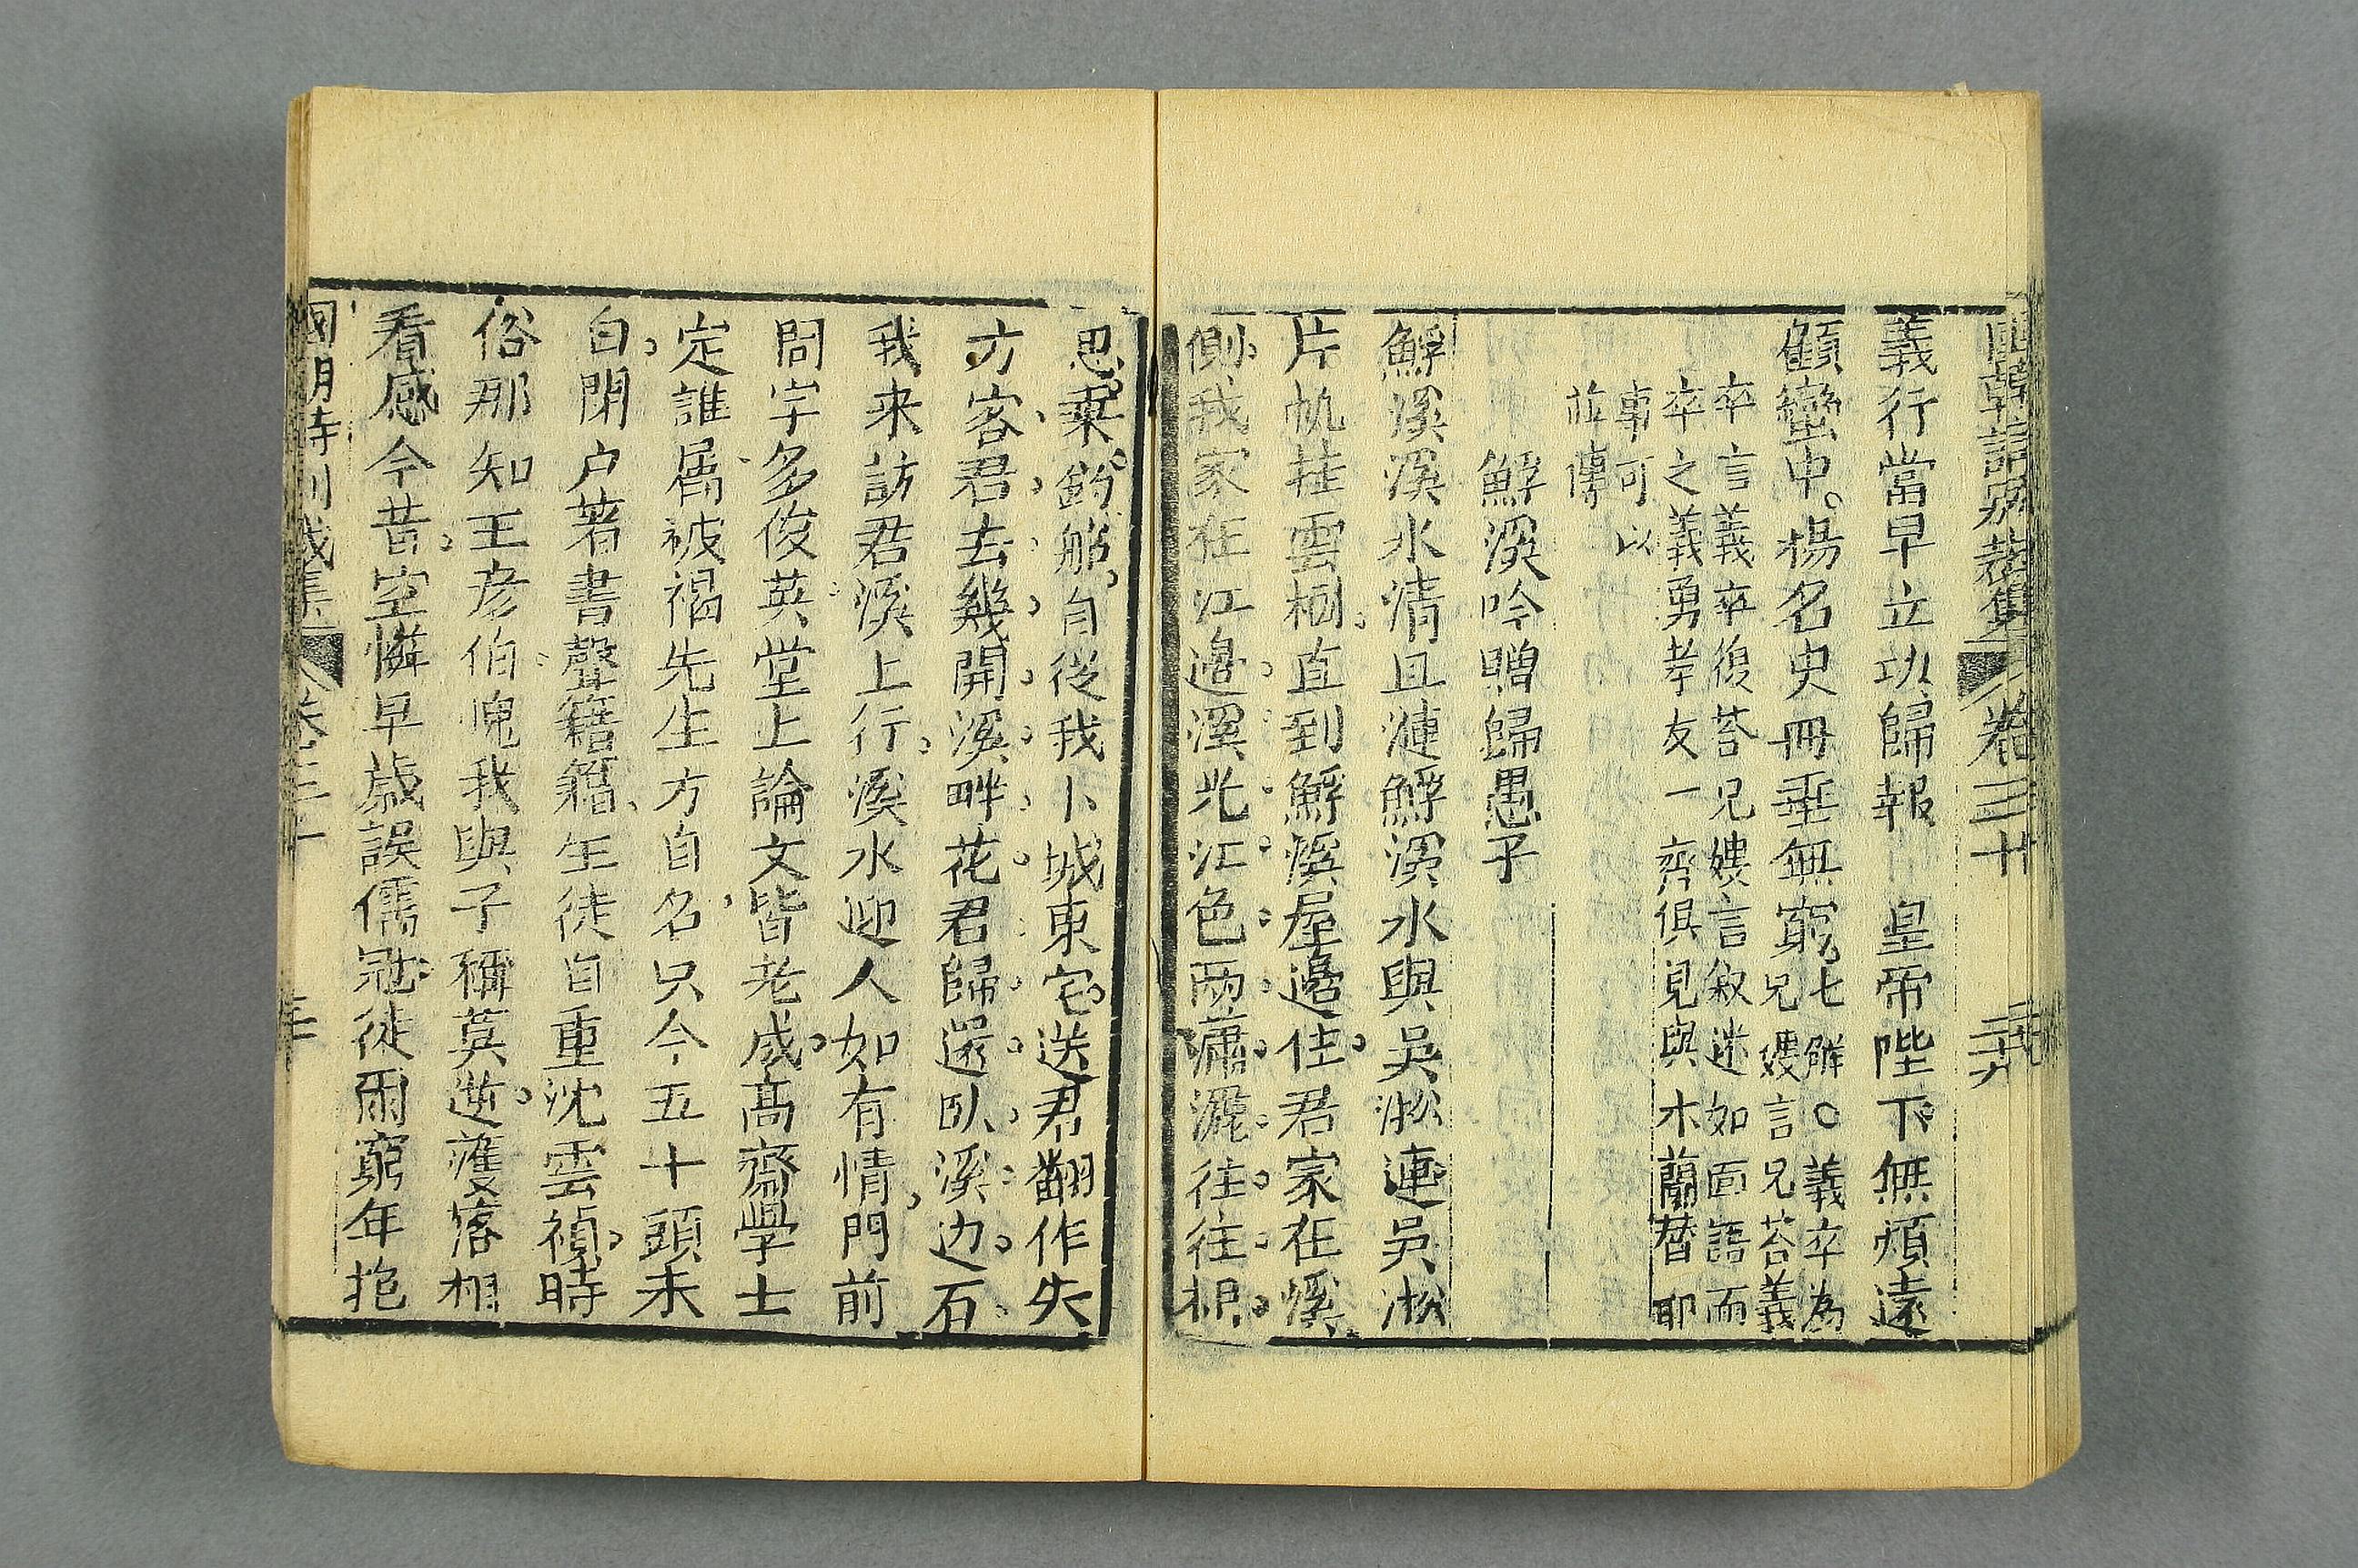 國朝詩別裁集 卷三十
義行當早立功歸報 皇帝陛下無煩遠
顧蠻中楊名史冊垂無窮七解○義卒為
兄嫂言兄荅義
卒言義卒復荅兄嫂言叙迷如面語而
卒之義勇孝友一齊俱見與木蘭替耶
事可以
並傳
鮮溪吟贈歸愚子
鮮溪溪水清且漣鮮溪水與吳淞連吳淞
片帆挂雲𣐀直到鮮溪屋邊住君家在溪
側我家在江邊溪光江色兩瀟灑往往相
思棄釣船自從我卜城東宅送君翻作失
方客君去幾開溪畔花君歸還臥溪边石
我来訪君溪上行溪水迎人如有情門前
問字多俊英堂上論文皆老成高齋學士
定誰屬被褐先生方自名只今五十頭未
白閉户著書聲籍籍生徒自重沈雲禎時
俗那知王彥伯愧我與子稱莫逆濩落相
看感今昔空憐早歲誤儒冠徒爾窮年抱
國朝詩別裁集 卷三十